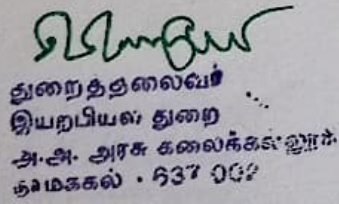 துறைத்தலைவர்
இயற்பியல் துறை
அ.அ. அரசு கலைக்கல்லூரி
நாமக்கல் . 637 002